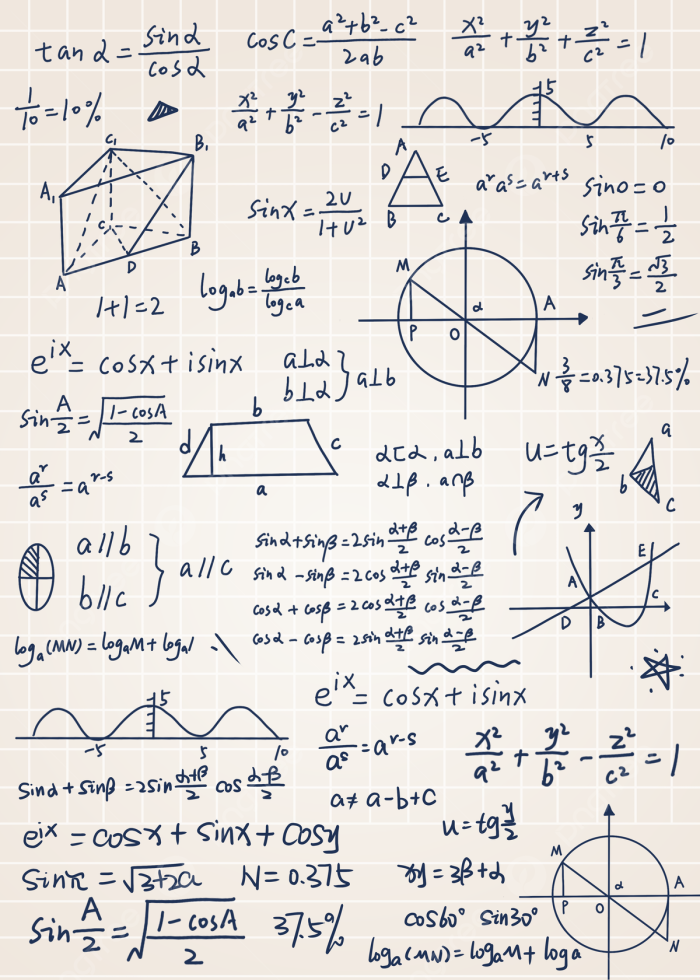 tan α = sinα/cosα
cosC = a²+b²-c²/2ab
x²/a² + y²/b² + z²/c² = 1
1/10 = 10%
x²/a² + y²/b² - z²/c² = 1
5
-5 5 10
C₁
B₁
A₁
C
B
D
A
sinx = 2U/1+U²
A
D E
B C
aʳaˢ = aʳ⁺ˢ
sin0 = 0
sin π/6 = 1/2
sin π/3 = √3/2
1+1=2
logab = logcb/logca
M
α A
P O
N
3/8 = 0.375 = 37.5%
eⁱˣ = cosx + isinx
a⊥α
b⊥α } a⊥b
sin A/2 = √1-cosA/2
b
d h c
a
α⊏α . a⊥b
α⊥β . a∩β
U = tg x/2
a
b
C
aʳ/aˢ = aʳ⁻ˢ
a//b
b//c } a//c
sinα+sinβ = 2sin α+β/2 cos α-β/2
sinα -sinβ = 2cos α+β/2 sin α-β/2
cosα + cosβ = 2cos α+β/2 cos α-β/2
cosα - cosβ = 2sin α+β/2 sin α-β/2
y
E
A
C
D B
logₐ(MN) = logₐM + logₐ1
eⁱˣ = cosx + isinx
5
-5 5 10
aʳ/aˢ = aʳ⁻ˢ
x²/a² + y²/b² - z²/c² = 1
sinα + sinβ = 2sin α+β/2 cos α-β/2
a≠ a-b+c
eⁱˣ = cosx + sinx + cosy
U = tg y/2
sinπ = √3+2a N = 0.375
xy = 3β+α
sin A/2 = √1-cosA/2 37.5%
cos60° sin30°
logₐ(MN) = logₐM + logₐ
M
α A
P O
N